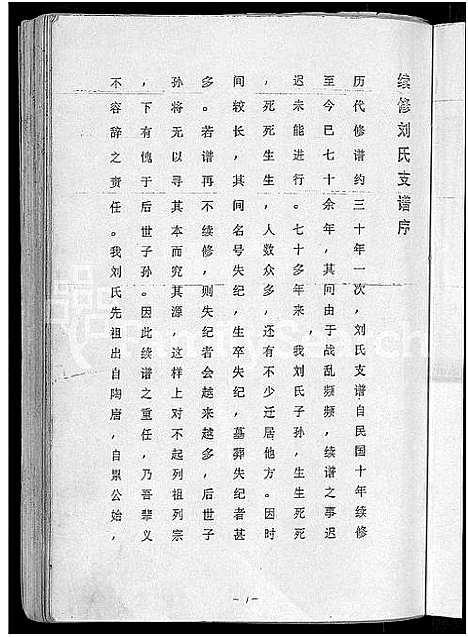 续修刘氏支谱序
历代修谱约三十年一次，刘氏支谱自民国十年续修
至今已七十余年，其间由于战乱频频，续谱之事迟
迟未能进行。七十多年来，我刘氏子孙，生生死死
，死死生生，人数众多，还有不少迁居他方。因时
间较长，其间名号失纪，生卒失纪，墓葬失纪者甚
多。若谱再不续修，则失纪者会越来越多，后世子
孙将无以寻其本而究其源，这样上对不起列祖列宗
，下有愧于后世子孙。因此续谱之重任，乃吾辈义
不容辞之责任。我刘氏先祖出自陶唐，自累公始，
-1-